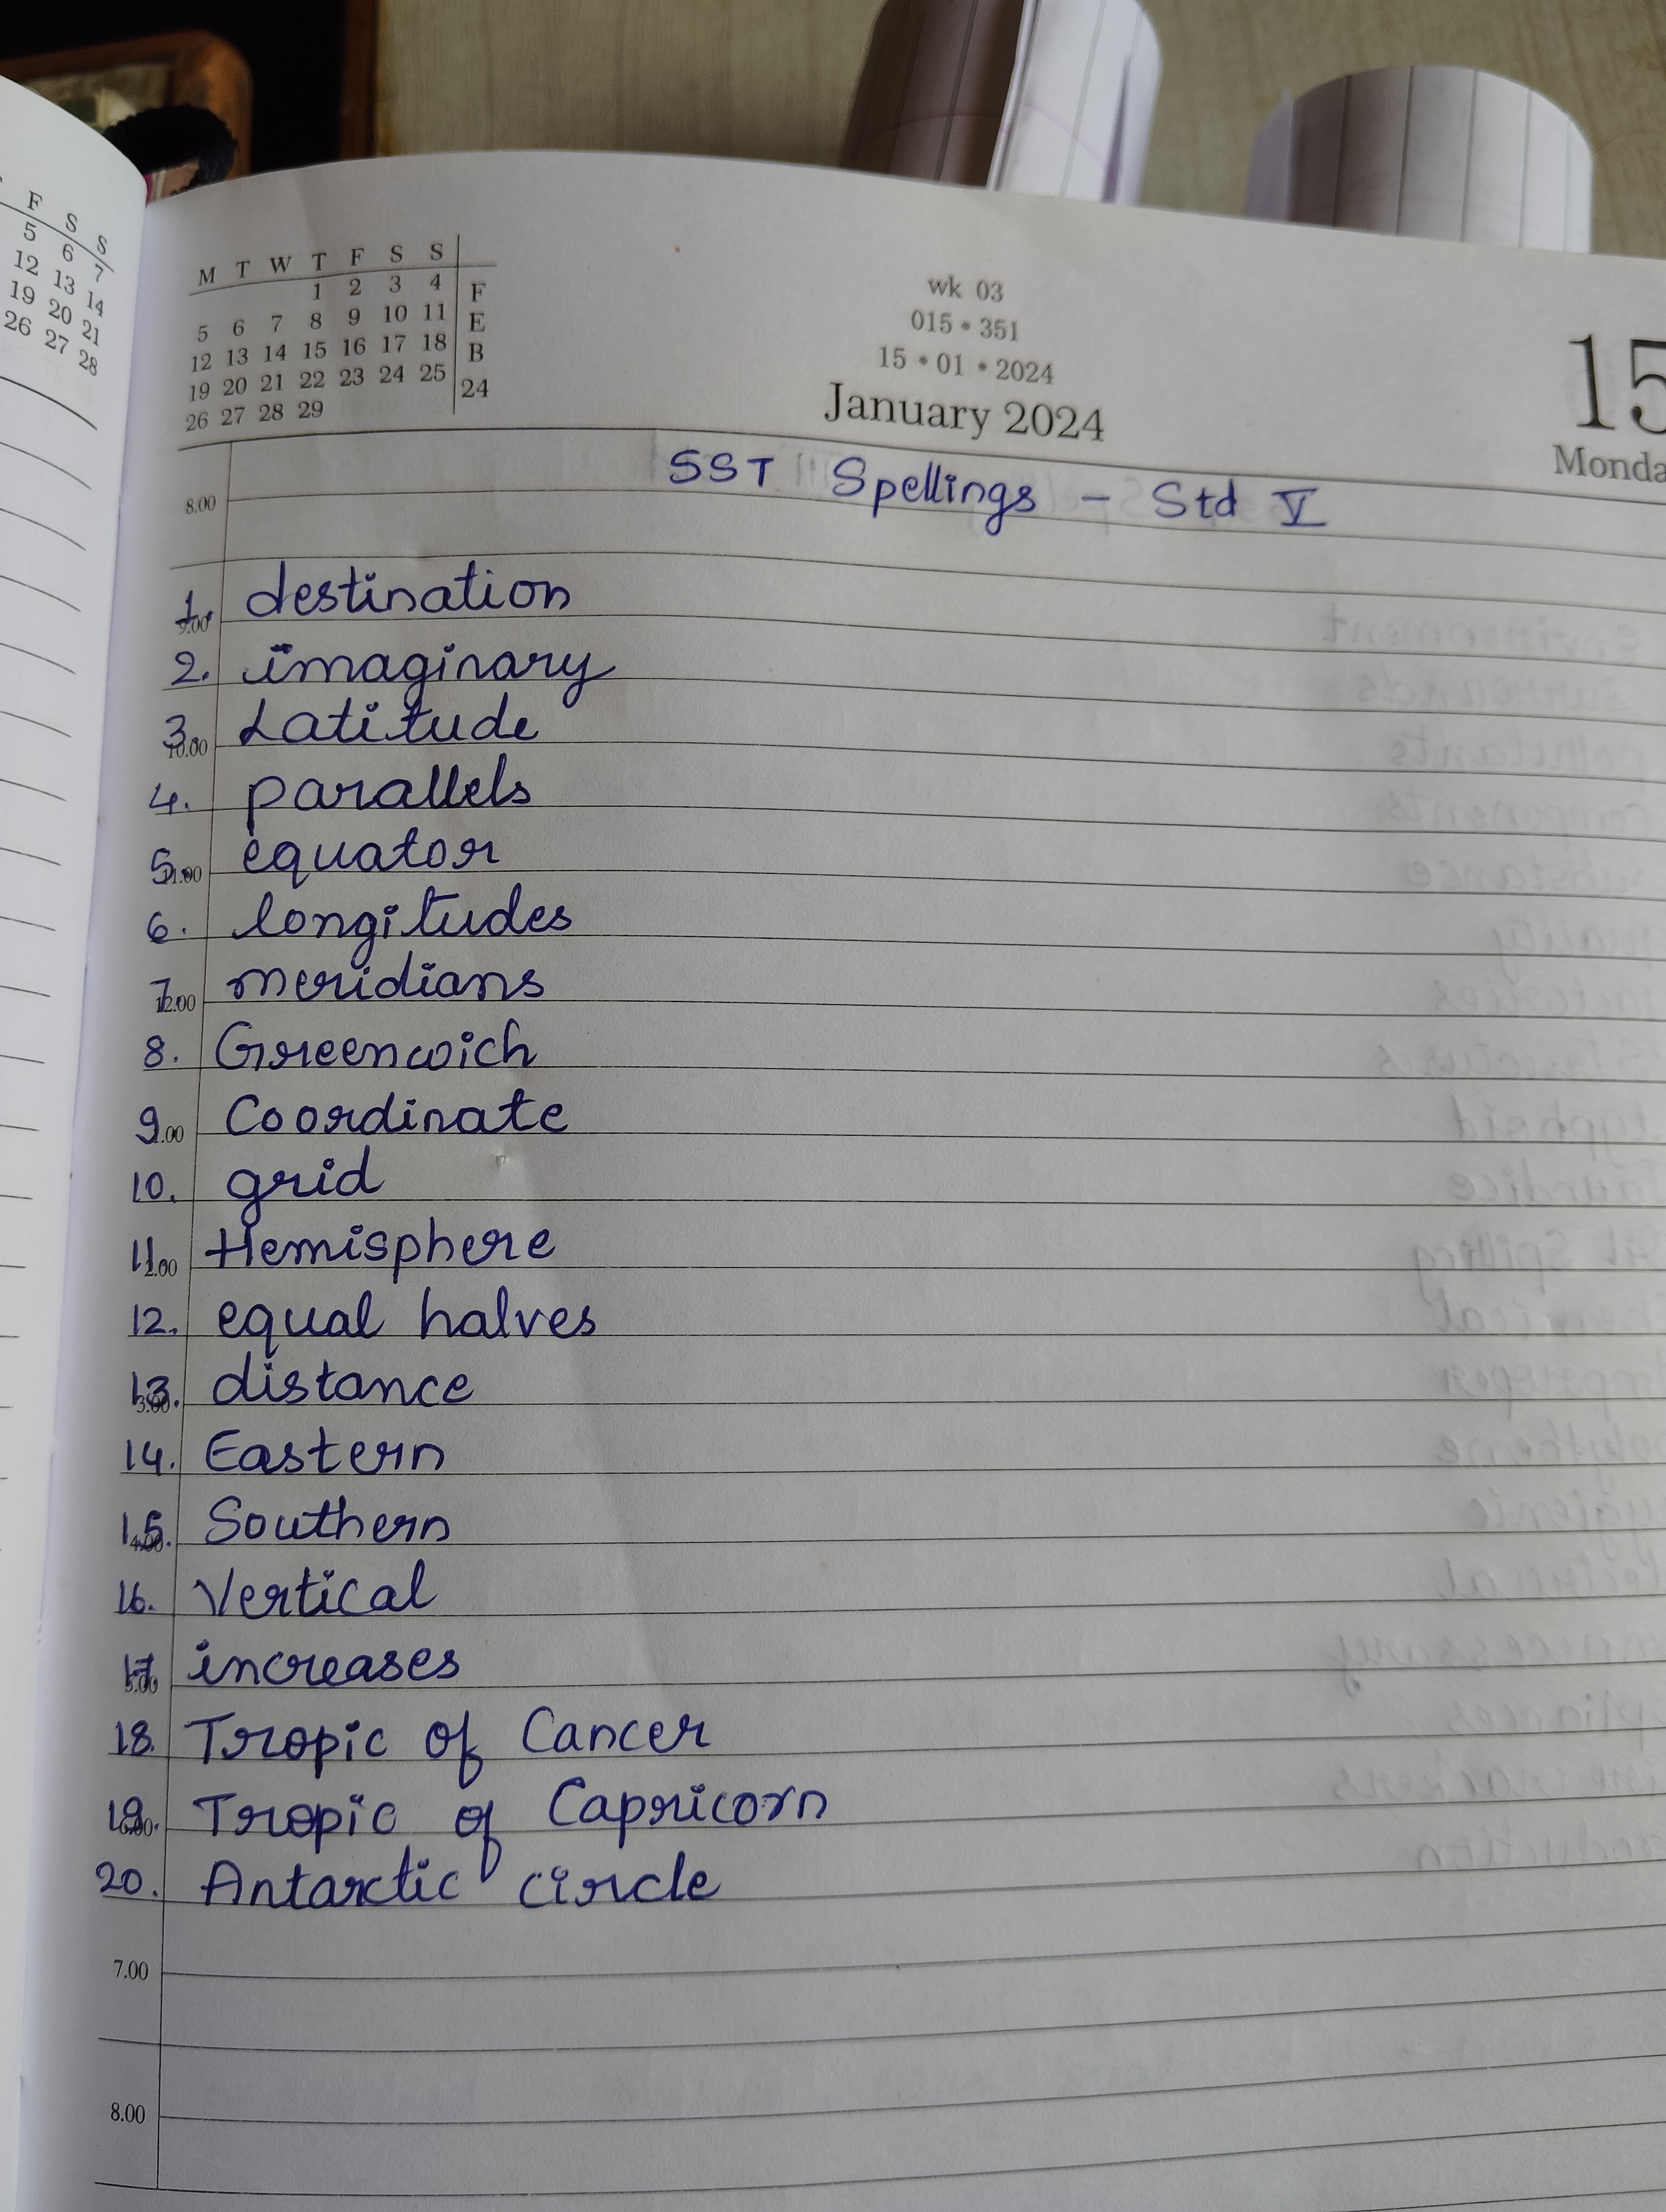 F S S
5 6 7
12 13 14
19 20 21
26 27 28
M T W T F S S
1 2 3 4
5 6 7 8 9 10 11
12 13 14 15 16 17 18
19 20 21 22 23 24 25
26 27 28 29
F
E
B
24
wk 03
015 • 351
15 • 01 • 2024
January 2024
15
Monda
SST Spellings - Std V
8.00
1. destination
9.00
2. imaginary
3. Latitude
10.00
4. parallels
5. equator
11.00
6. longitudes
7. meridians
12.00
8. Greenwich
9. Coordinate
.00
10. grid
11. Hemisphere
2.00
12. equal halves
13. distance
3.00
14. Eastern
15. Southern
4.00
16. Vertical
17 increases
5.00
18. Tropic of Cancer
19. Tropic of Capricorn
6.00
20. Antarctic circle
7.00
8.00